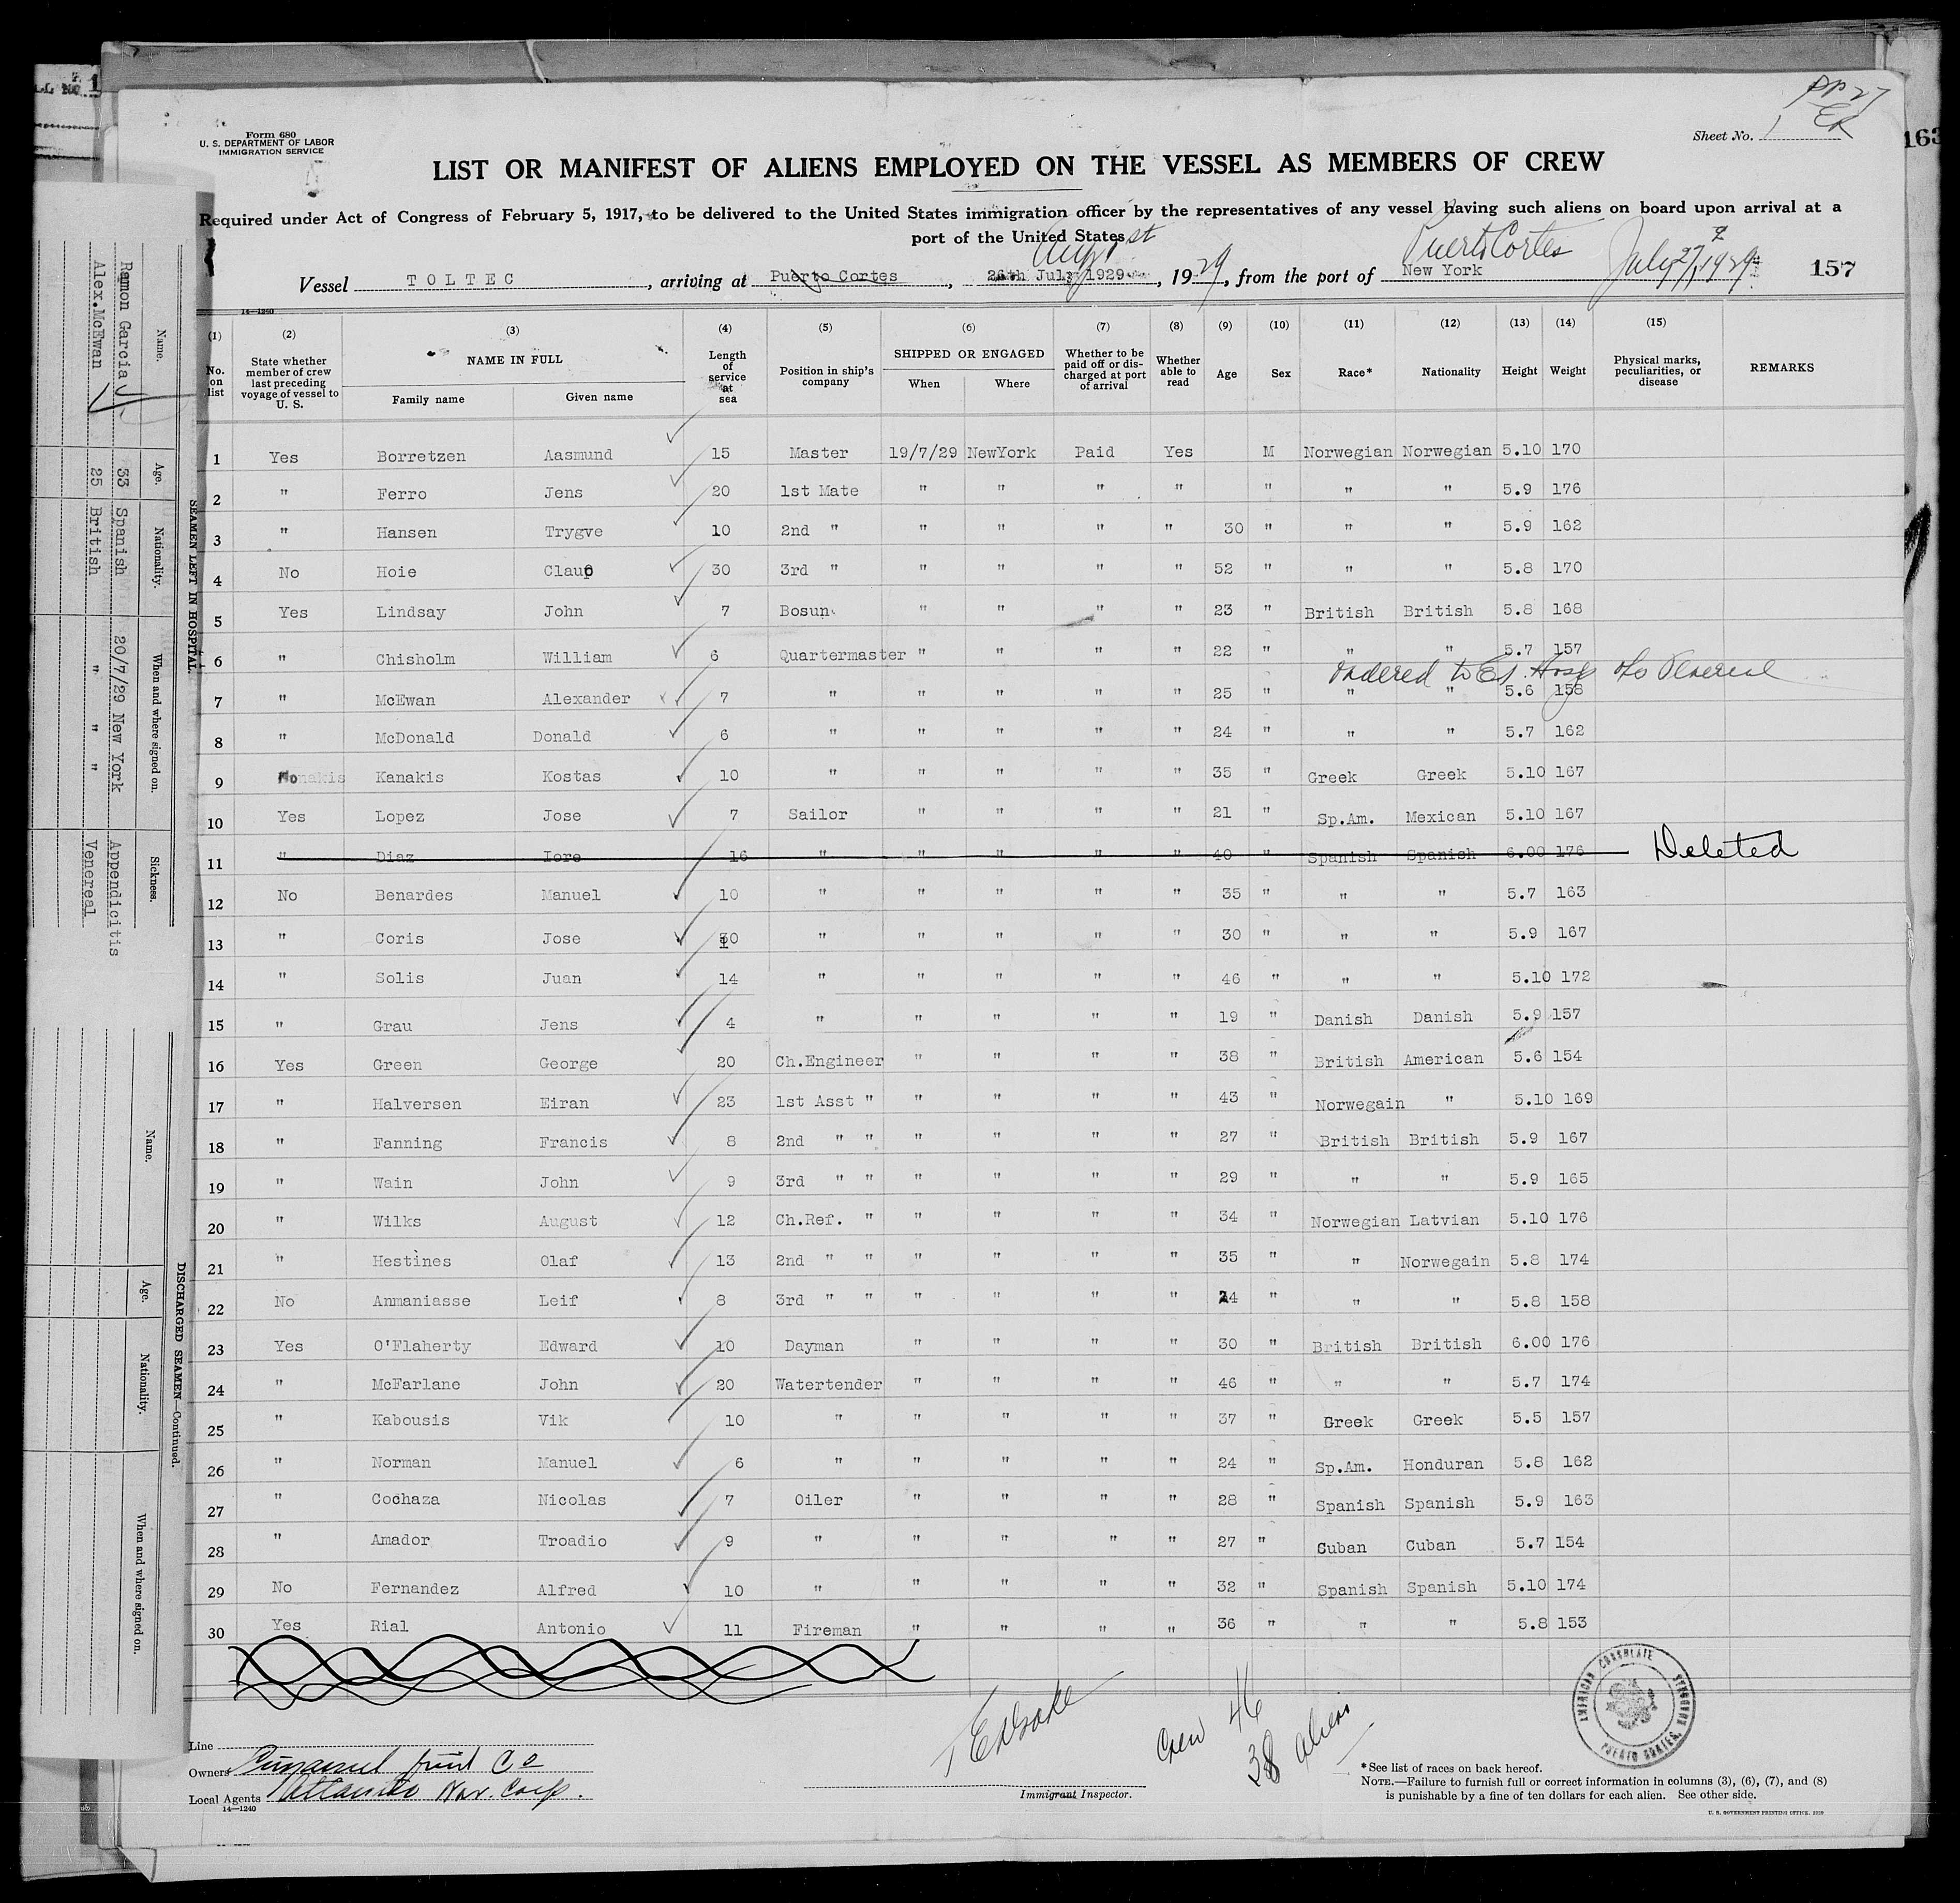 Form 680
U. S. DEPARTMENT OF LABOR
IMMIGRATION SERVICE
Sheet No. 1
163
LIST OR MANIFEST OF ALIENS EMPLOYED ON THE VESSEL AS MEMBERS OF CREW
Required under Act of Congress of February 5, 1917, to be delivered to the United States immigration officer by the representatives of any vessel having such aliens on board upon arrival at a
port of the United States
Puerto Cortes
Vessel TOLTEC, arriving at Puerto Cortes, 26th July 1929, 1929, from the port of New York July 27, 1929 157
14—1240
(1) (2) (3) (4) (5) (6) (7) (8) (9) (10) (11) (12) (13) (14) (15)
No. on list State whether member of crew last preceding voyage of vessel to U. S. NAME IN FULL Family name Given name Length of service at sea Position in ship's company SHIPPED OR ENGAGED When Where Whether to be paid off or discharged at port of arrival Whether able to read Age Sex Race* Nationality Height Weight Physical marks, peculiarities, or disease REMARKS
1 Yes Borretzen Aasmund 15 Master 19/7/29 NewYork Paid Yes M Norwegian Norwegian 5.10 170
2 " Ferro Jens 20 1st Mate " " " " " " " 5.9 176
3 " Hansen Trygve 10 2nd " " " " " 30 " " " 5.9 162
4 No Hoie Claup 30 3rd " " " " " 52 " " " 5.8 170
5 Yes Lindsay John 7 Bosun " " " " 23 " British British 5.8 168
6 " Chisholm William 6 Quartermaster " " " " 22 " " " 5.7 157
ordered to E.I. Hosp a/c Venereal
7 " McEwan Alexander 7 " " " " " 25 " " " 5.6 158
8 " McDonald Donald 6 " " " " " 24 " " " 5.7 162
9 No Kanakis Kostas 10 " " " " " 35 " Greek Greek 5.10 167
10 Yes Lopez Jose 7 Sailor " " " " 21 " Sp.Am. Mexican 5.10 167
11 " Diaz Iore 16 " " " " " 40 " Spanish Spanish 6.00 176 Deleted
12 No Benardes Manuel 10 " " " " " 35 " " " 5.7 163
13 " Coris Jose 10 " " " " " 30 " " " 5.9 167
14 " Solis Juan 14 " " " " " 46 " " " 5.10 172
15 " Grau Jens 4 " " " " " 19 " Danish Danish 5.9 157
16 Yes Green George 20 Ch.Engineer " " " " 38 " British American 5.6 154
17 " Halversen Eiran 23 1st Asst " " " " " 43 " Norwegain " 5.10 169
18 " Fanning Francis 8 2nd " " " " " " 27 " British British 5.9 167
19 " Wain John 9 3rd " " " " " " 29 " " " 5.9 165
20 " Wilks August 12 Ch.Ref. " " " " " 34 " Norwegian Latvian 5.10 176
21 " Hestines Olaf 13 2nd " " " " " " 35 " " Norwegain 5.8 174
22 No Anmaniasse Leif 8 3rd " " " " " " 24 " " " 5.8 158
23 Yes O'Flaherty Edward 10 Dayman " " " " 30 " British British 6.00 176
24 " McFarlane John 20 Watertender " " " " 46 " " " 5.7 174
25 " Kabousis Vik 10 " " " " " 37 " Greek Greek 5.5 157
26 " Norman Manuel 6 " " " " " 24 " Sp.Am. Honduran 5.8 162
27 " Cochaza Nicolas 7 Oiler " " " " 28 " Spanish Spanish 5.9 163
28 " Amador Troadio 9 " " " " " 27 " Cuban Cuban 5.7 154
29 No Fernandez Alfred 10 " " " " " 32 " Spanish Spanish 5.10 174
30 Yes Rial Antonio 11 Fireman " " " " 36 " " " 5.8 153
Line
Owners Cuyamel Fruit Co
Local Agents Atlantic Nav. Corp.
14—1240
Immigrant Inspector.
Crew 46
38 aliens
AMERICAN CONSULATE
PUERTO CORTES, HONDURAS
*See list of races on back hereof.
NOTE.—Failure to furnish full or correct information in columns (3), (6), (7), and (8)
is punishable by a fine of ten dollars for each alien. See other side.
U. S. GOVERNMENT PRINTING OFFICE. 1929
SEAMEN LEFT IN HOSPITAL.
Name. Age. Nationality. When and where signed on. Sickness.
Ramon Garcia 33 Spanish 20/7/29 New York Appendicitis
Alex.McEwan 25 British " " " Venereal
DISCHARGED SEAMEN—Continued.
Name. Age. Nationality. When and where signed on.